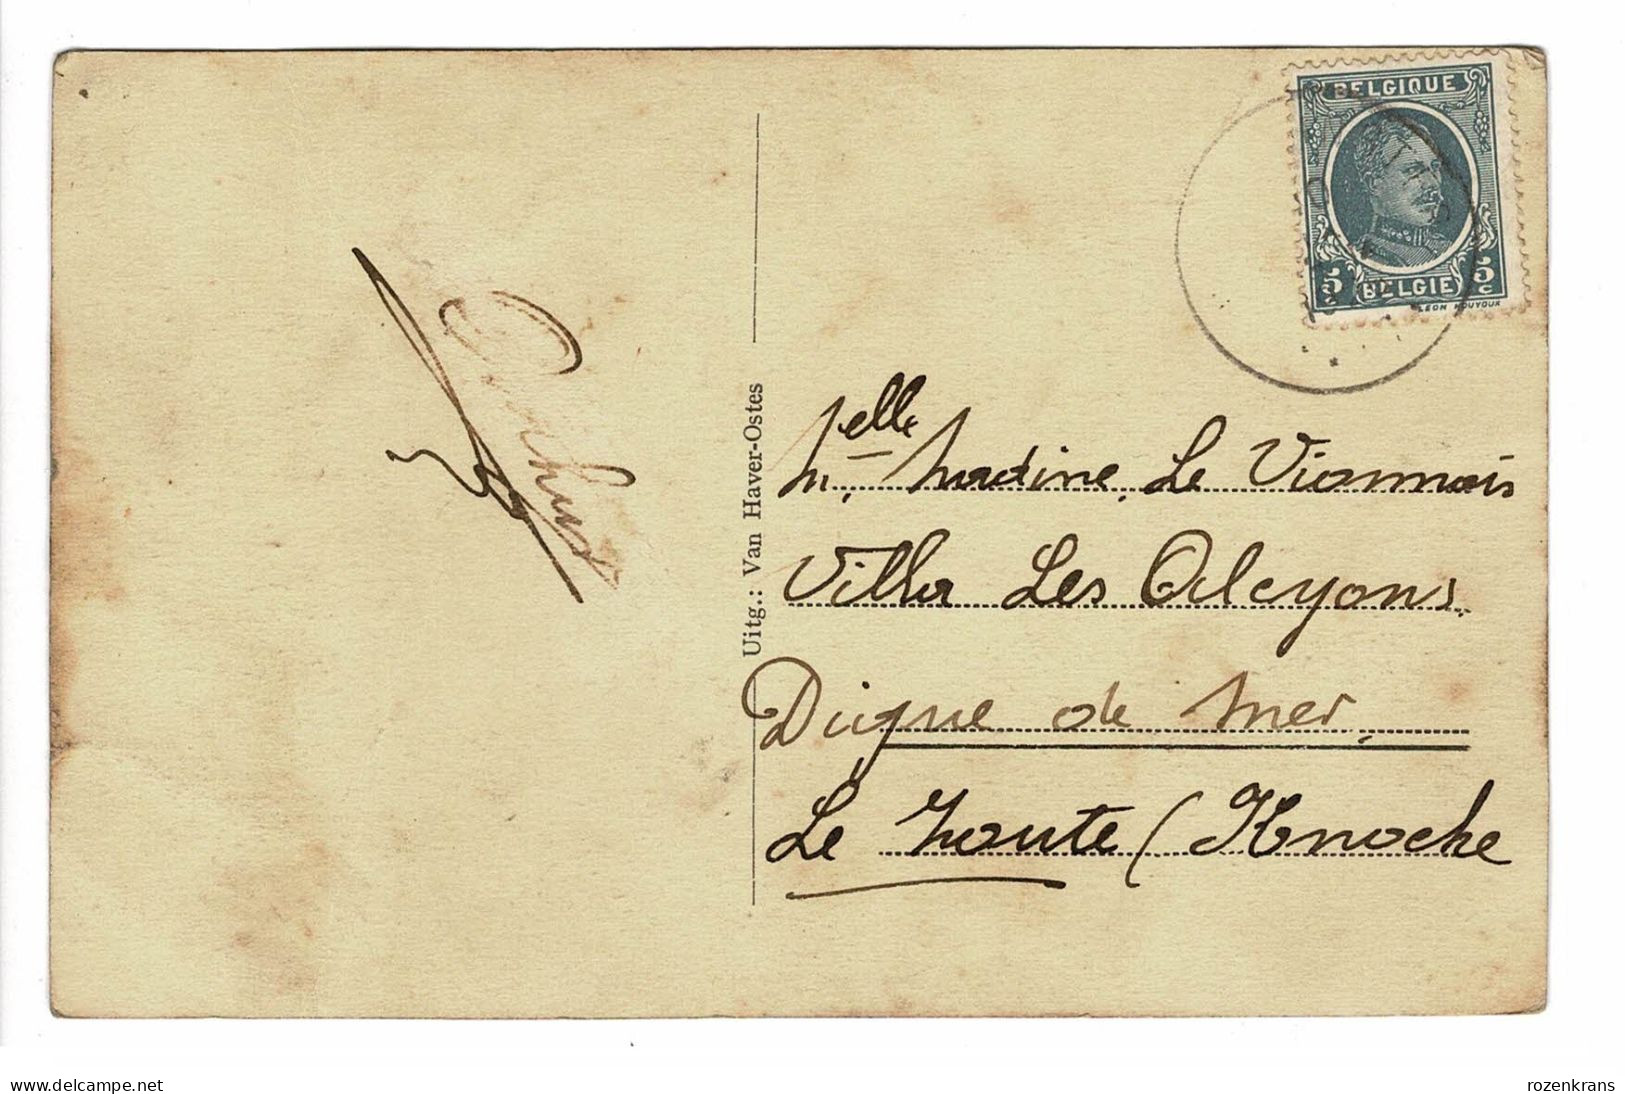 BELGIQUE
5c BELGIE 5c
LEON HOUYOUX
Uitg.: Van Haver-Ostes
Melle Nadine Le Vionnois
Villa Les Alcyons
Digue de Mer
Le Zoute (Knocke
www.delcampe.net
rozenkrans